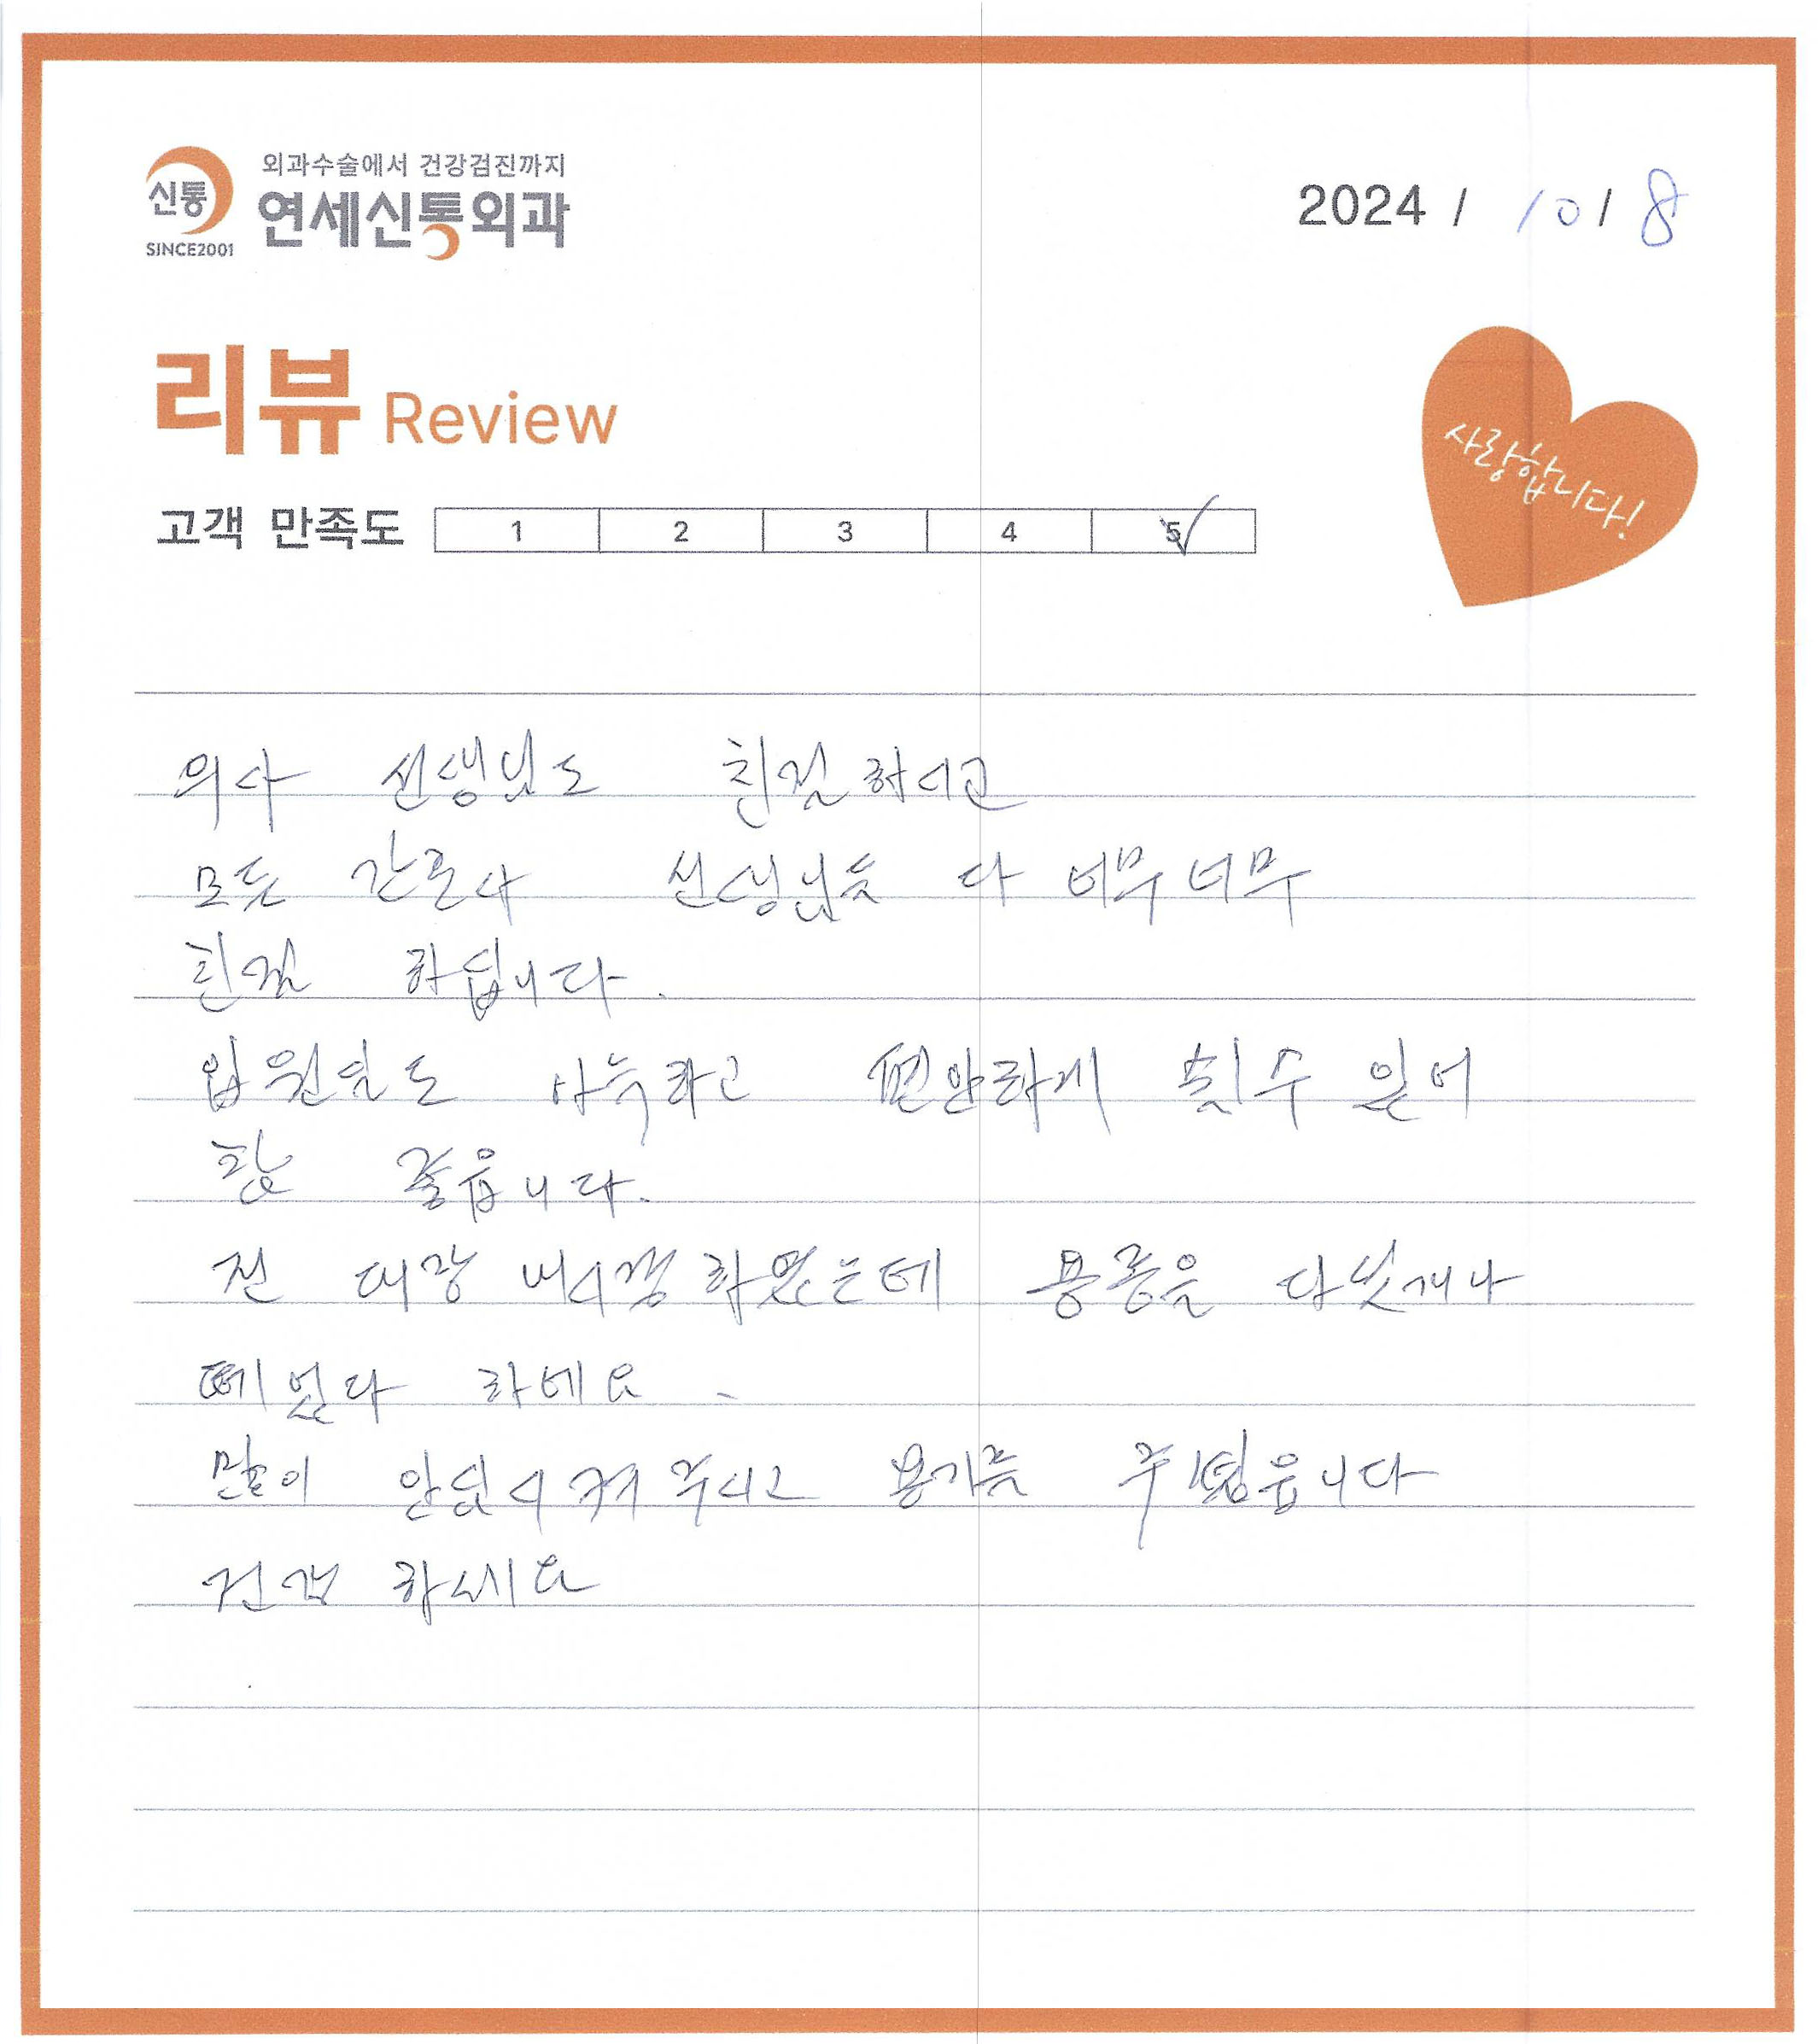 외과수술에서 건강검진까지
신통
연세신통외과
SINCE2001
2024 / 10 / 8
리뷰 Review
사랑합니다!
고객 만족도 1 2 3 4 5
의사 선생님도 친절하시고
모든 간호사 선생님들 다 너무너무
친절 하십니다.
입원실도 아늑하고 편안하게 쉴수 있어
참 좋읍니다.
전 대장 내시경 하였는데 용종을 다섯개나
떼었다 하네요.
많이 안심시켜 주시고 용기를 주셨읍니다
건강 하세요